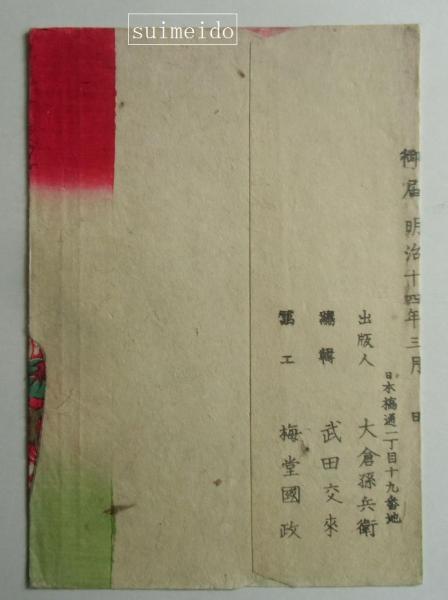 suimeido
御届 明治十四年三月 日
日本橋通一丁目十九番地
出版人 大倉孫兵衛
編輯 武田交來
画工 梅堂國政